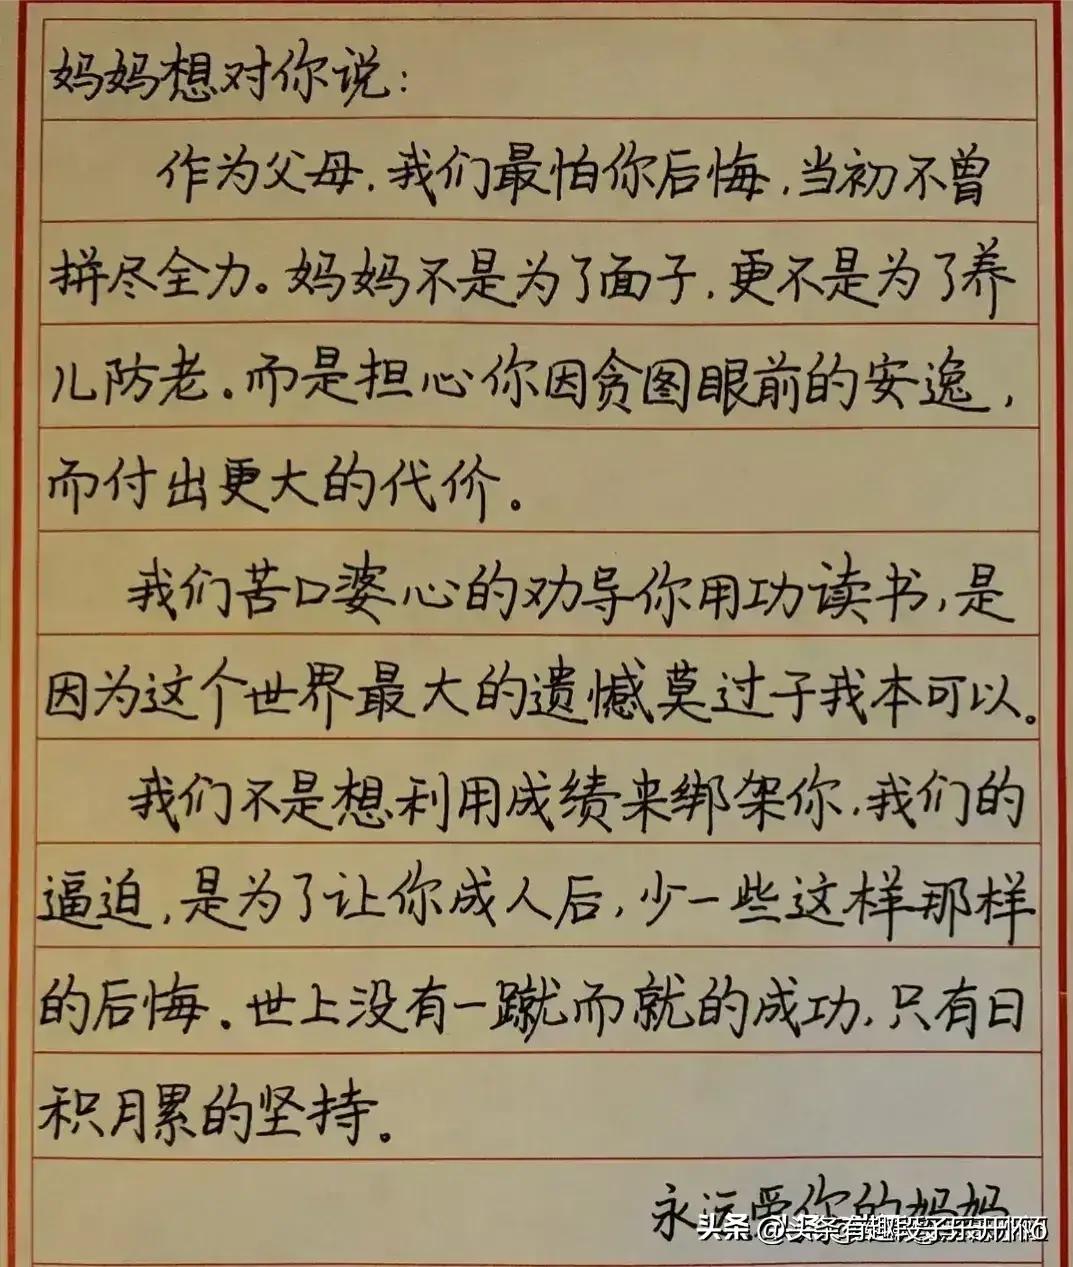 妈妈想对你说：
作为父母，我们最怕你后悔，当初不曾
拼尽全力。妈妈不是为了面子，更不是为了养
儿防老。而是担心你因贪图眼前的安逸，
而付出更大的代价。
我们苦口婆心的劝导你用功读书，是
因为这个世界最大的遗憾莫过于我本可以。
我们不是想利用成绩来绑架你，我们的
逼迫，是为了让你成人后，少一些这样那样
的后悔。世上没有一蹴而就的成功，只有日
积月累的坚持。
永远爱你的妈妈
头条 @头条有趣段子